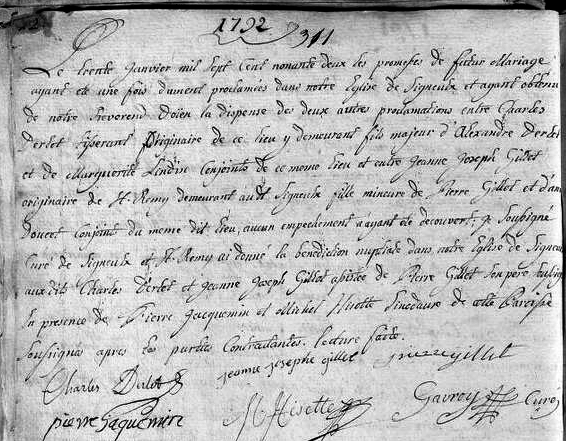 1792
311
Le trente janvier mil sept cent nonante deux les promesses de futur Mariage
ayant eté une fois dument proclamées dans notre Eglise de Signeulx et ayant obtenu
de notre Reverend Doïen la dispense des deux autres proclamations entre Charles
Derlet originaire de ce lieu y demeurant fils majeur d'Alexandre Derlet
et de Marguerite conjoints de ce meme lieu et entre jeanne joseph Gillet
originaire de St Remy demeurant audt Signeulx fille mineure de Pierre Gillet et d'anne
Doucet conjoint du meme dit lieu, aucun empechement ayant ete decouvert, je soubsigné
Curé de Signeulx et St Remy ai donné la benediction nuptiale dans notre Eglise de Signeulx
aux dits Charles Derlet et jeanne joseph Gillet de Pierre Gillet son pere
En presence de Pierre jacquemin et Michel Misette de cette Paroisse
soussignés apres les parties Contractantes. lecture faite.
Charles Derlet
jeanne josephe gillet
pierre gillet
pierre jaquemin
M Misette
Gavroy Curé